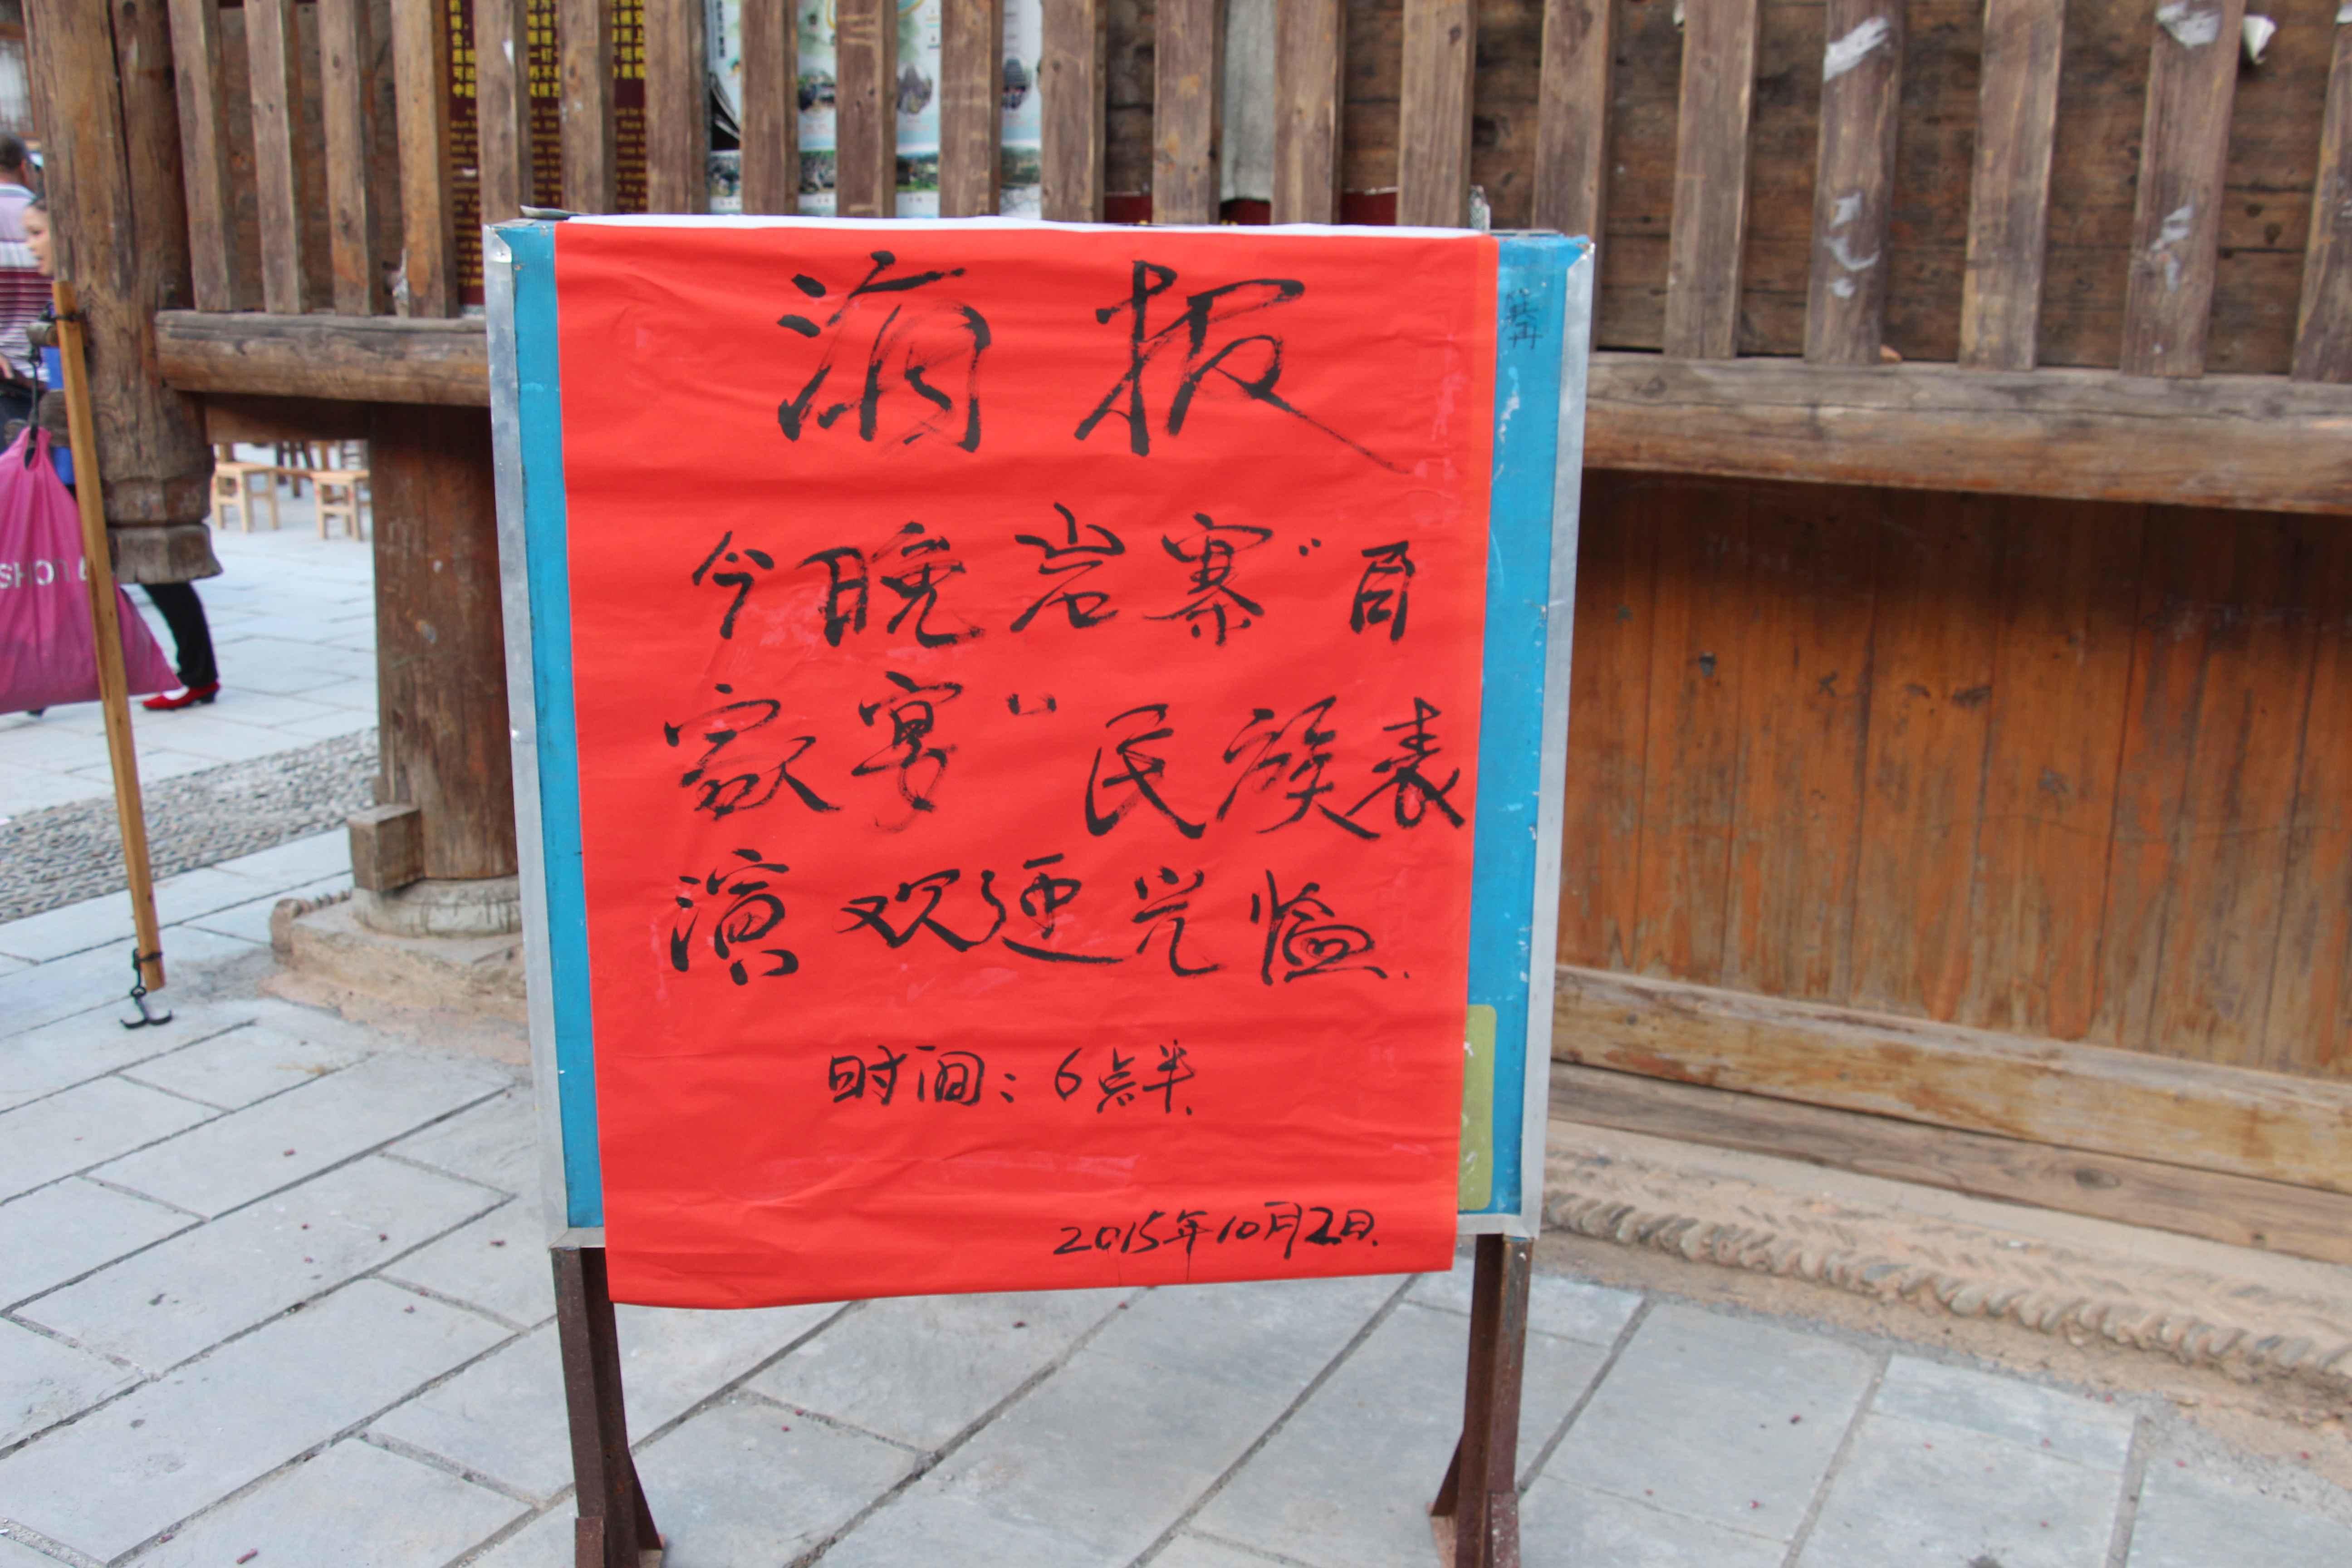 海报
今晚岩寨“百
家宴”民族表
演欢迎光临.
时间:6点半.
2015年10月2日.